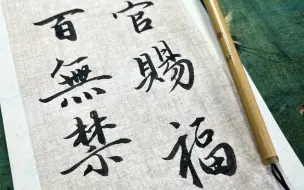 官賜福
百無禁